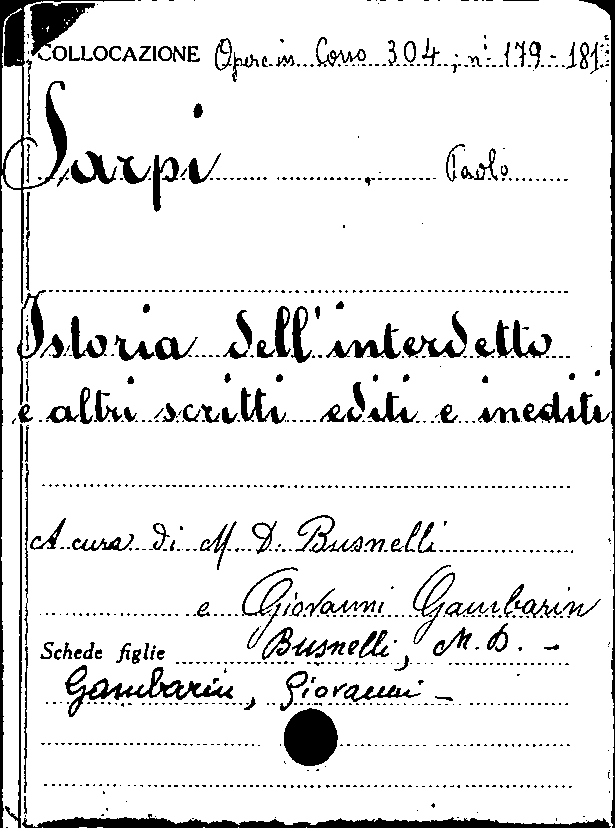 COLLOCAZIONE Opere in Corso 304; ni 179-181
Sarpi , Paolo
Istoria dell'interdetto
e altri scritti editi e inediti
A cura di M D. Busnelli
e Giovanni Gambarin
Schede figlie Busnelli, M.D. -
Gambarin, Giovanni -